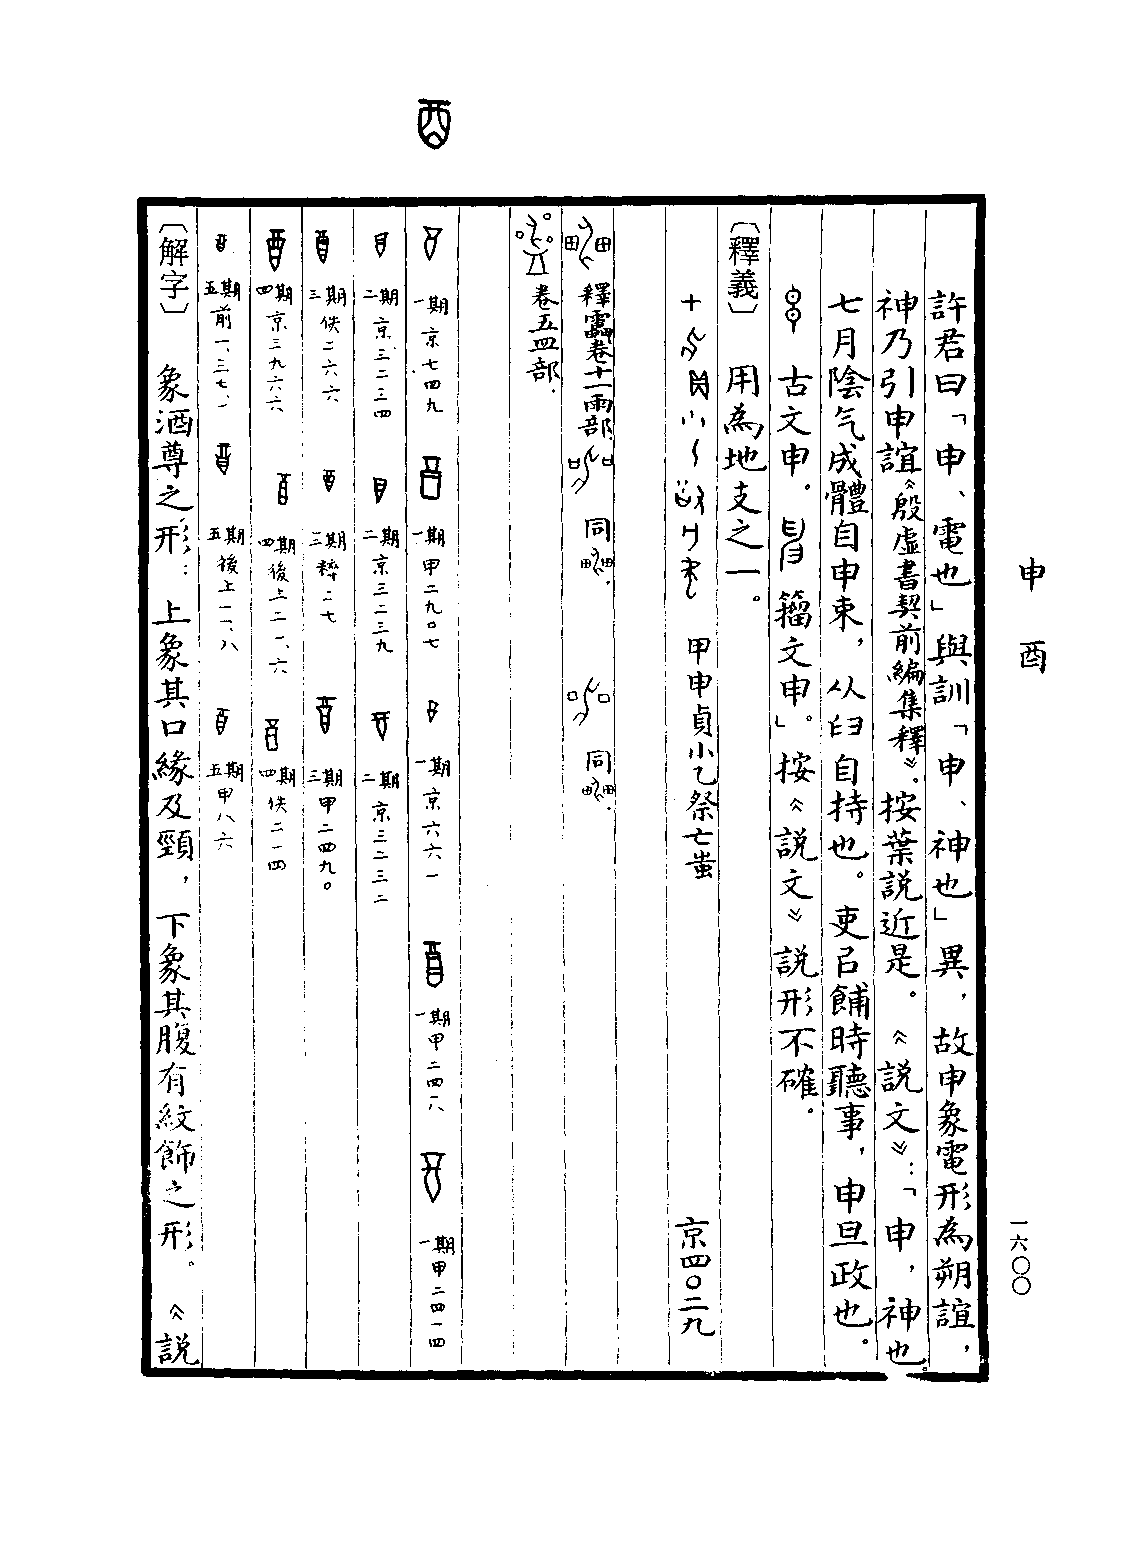 申 酉
一六〇〇
許君曰「申、電也」與訓「申、神也」異，故申象電形為朔誼，
神乃引申誼《殷虛書契前編集釋》。按葉說近是。《說文》：「申，神也。
七月陰气成體自申束，从𦥑自持也。吏㠯餔時聽事，申旦政也。
古文申。籀文申」。按《說文》說形不確。
〔釋義〕 用為地支之一。
甲申貞小乙祭亡蚩 京四〇二九
釋靁卷十一雨部 同 同
卷五四部
一期京七四九 一期甲二九〇七 一期京六六一 一期甲二四八 一期甲二四一四
二期京三二三四 二期京三二三九 二期京三二三二
三期佚二六六 三期粹二七 三期甲二四九〇
四期京三九六六 四期後上二一、六 四期佚二一四
五期前一、三七、一 五期後上一一、八 五期甲八六
〔解字〕 象酒尊之形：上象其口緣及頸，下象其腹有紋飾之形。《說